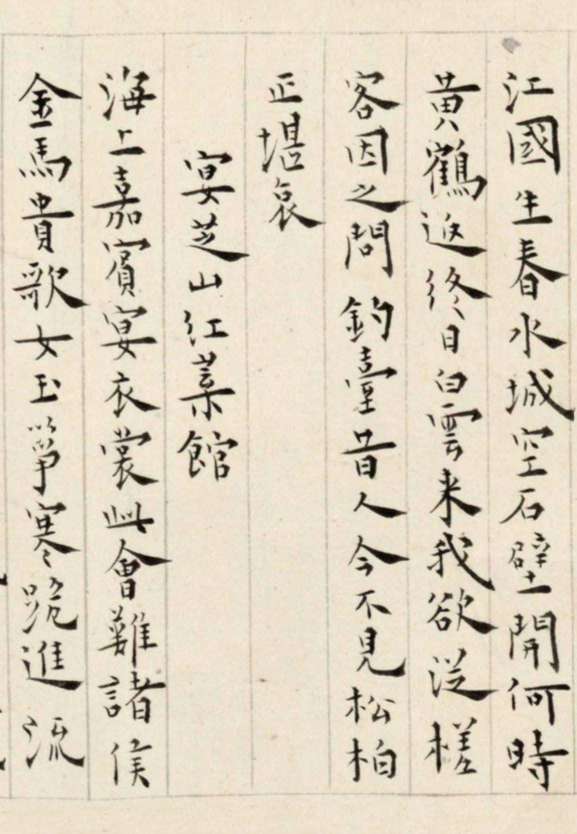 江國生春水城空石壁開何時
黄鶴返終日白雲来我欲從槎
客因之問釣臺昔人今不見松柏
正堪哀
宴芝山紅葉館
海上嘉賓宴衣裳此會難諸侯
金馬貴歌女玉箏寒跪進流